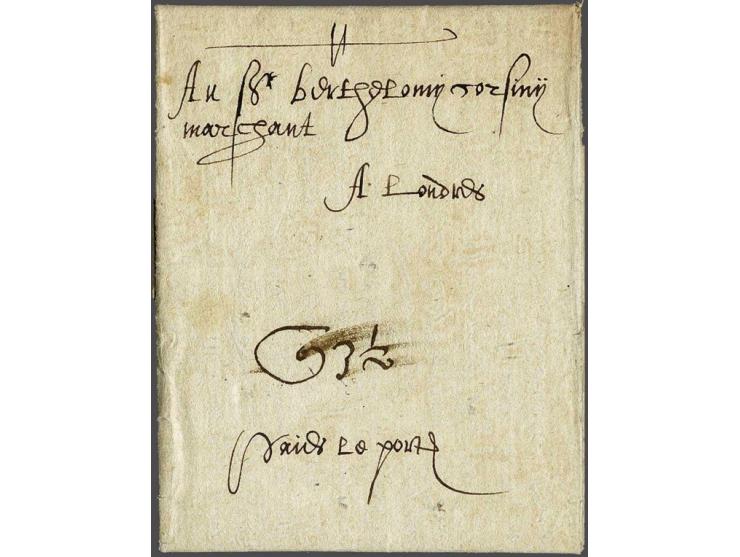 Au Sr berthelomy Corsiny
marchant
A. Londres
3½
paids le porte